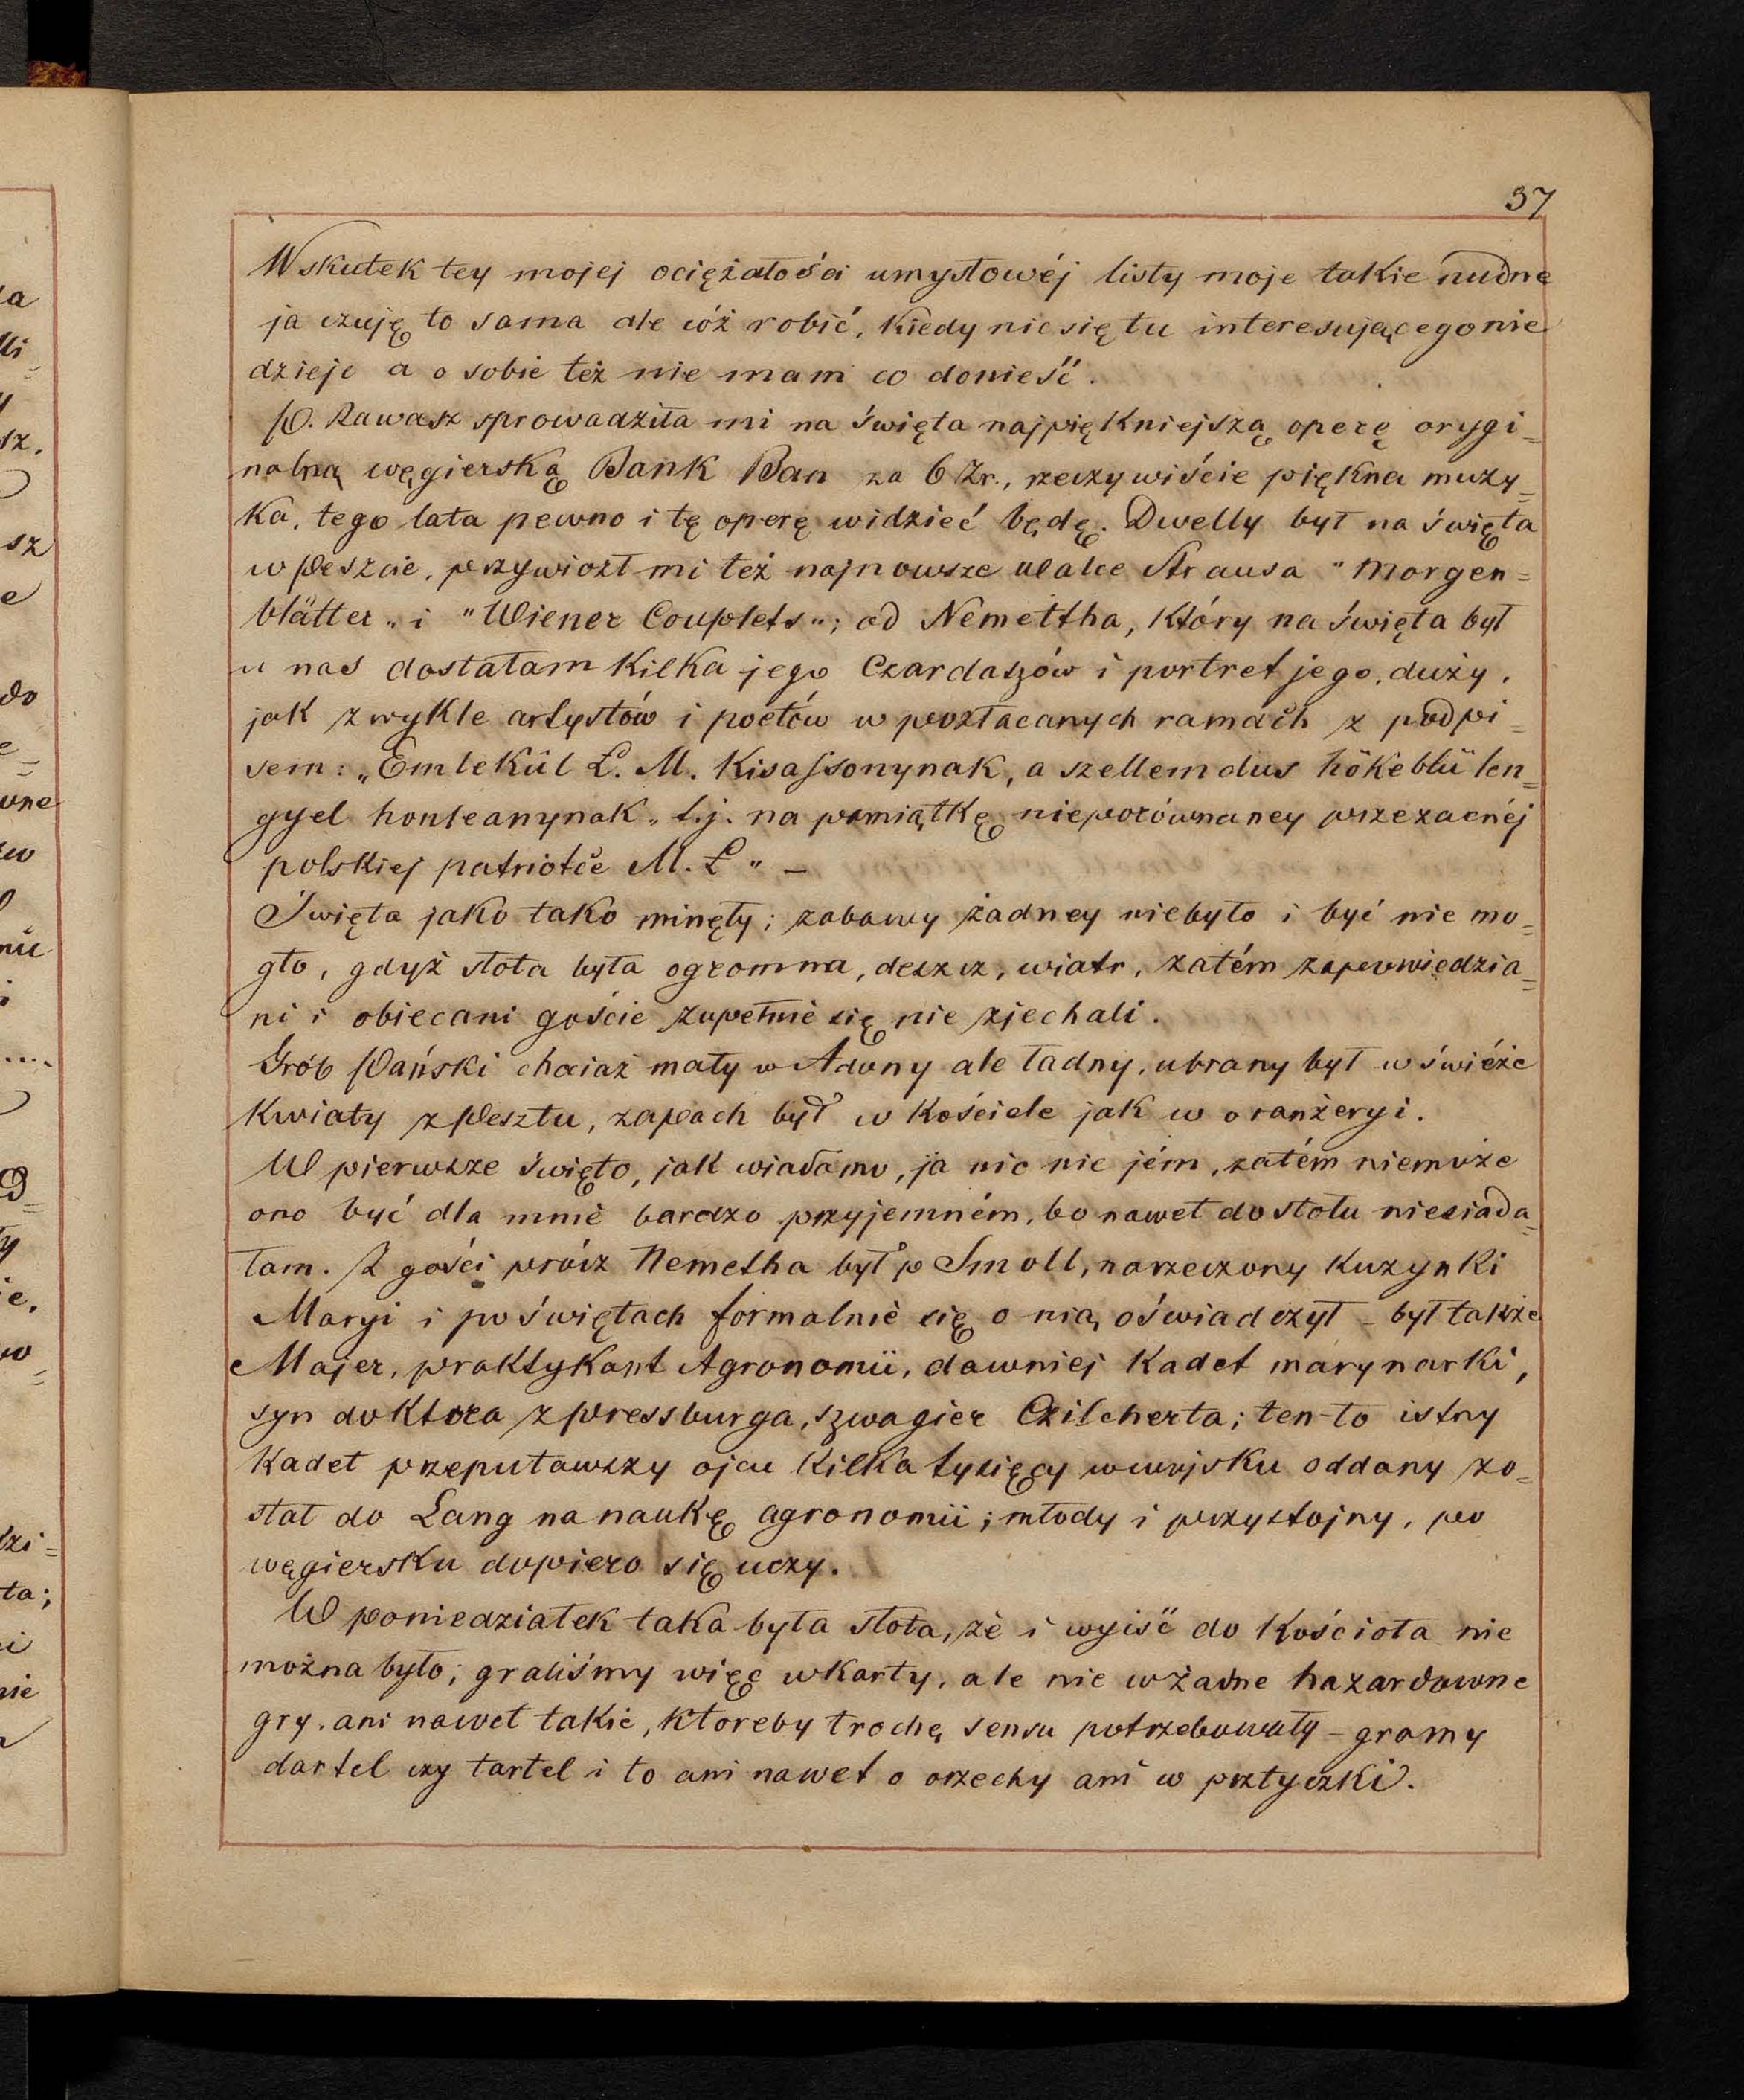 37
Wskutek tey mojej ociężałości umysłowéj listy moje takie nudne
ja czuję to sama ale cóż robić, kiedy nic się tu interesującego nie
dzieje a o sobie też nie mam co donieść.
P. Zawasz sprowadziła mi na święta najpiękniejszą operę orygi=
nalną węgierską Bank Ban za 6 Zr., rzeczywiście piękna muzy=
ka, tego lata pewno i tę operę widzieć będę. Dwelly był na święta
w Peszcie, przywiózł mi też najnowsze walce Strausa "Morgen=
blätter" i "Wiener Couplets"; od Nemettha, który na święta był
u nas dostałam kilka jego Czardaszów i portret jego, duży,
jak zwykle artystów i poetów w pozłacanych ramach z podpi=
sem: „Emlekül Ł. M. Kisasszonynak, a szellemdus hökeblü len=
gyel honleanynak„ t.j. na pamiątkę nieporównaney przezacnéj
polskiej patriotce M. Ł" –
Święta jako tako minęły; zabawy żadney niebyło i być nie mo=
gło, gdyż słota była ogromna, deszcz, wiatr, zatém zapowiedzia=
ni i obiecani goście zupełnie się nie zjechali.
Grób Pański chociaż mały w Adony ale ładny, ubrany był w świéże
kwiaty z Pesztu, zapach był w kościele jak w oranżeryi.
W pierwsze święto, jak wiadomo, ja nic nie jém, zatém niemoże
ono być dla mnie bardzo przyjemném, bo nawet do stołu niesiada=
łam. Z gości prócz Nemetha był p Smoll, narzeczony kuzynki
Maryi i po świętach formalnie się o nią oświadczył – był także
Majer, praktykant Agronomii, dawniej kadet marynarki,
syn doktora z Pressburga, szwagier Czilcherta; ten-to istny
kadet przeputawszy ojcu kilka tysięcy w wojsku oddany zo=
stał do Lang na naukę agronomii; młody i przystojny, po
węgiersku dopiero się uczy.
W poniedziałek taka była słota, że i wyiść do kościoła nie
można było; graliśmy więc w karty, ale nie w żadne hazardowne
gry, ani nawet takie, ktoreby trochę sensu potrzebowały – gramy
dartel czy tartel i to ani nawet o orzechy ani w prztyczki.